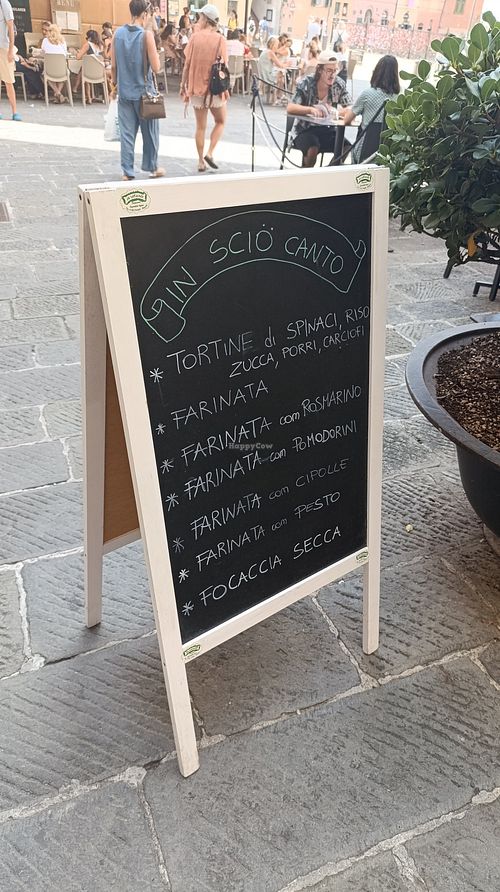 IN SCIÖ CANTO
* TORTINE di SPINACI, RISO
ZUCCA, PORRI, CARCIOFI
* FARINATA
* FARINATA com ROSMARINO
* FARINATA com POMODORINI
* FARINATA com CIPOLLE
* FARINATA com PESTO
* FOCACCIA SECCA
HappyCow